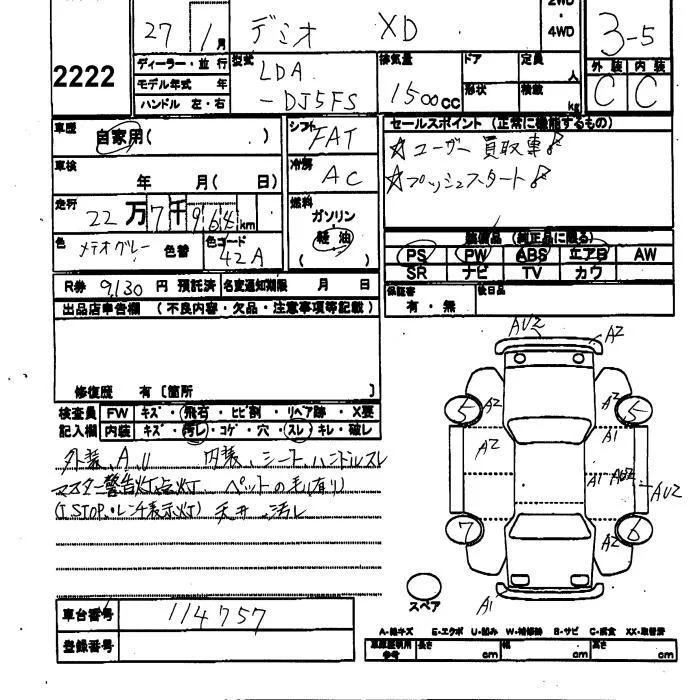 27 1月 デミオ XD
2WD
・
4WD
3-5
2222
ディーラー・並行
モデル年式 年
ハンドル 左・右
型式 LDA
-DJ5FS
排気量
1500cc
ドア
形状
定員
人
積載
kg
外装 内装
C C
車歴
自家用( )
車検
年 月( 日)
走行
22万7千964km
色 メテオグレー 色替
色コード
42A
シフト
FAT
冷房
AC
燃料
ガソリン
軽油
( )
セールスポイント (正常に機能するもの)
☆ユーザー買取車
☆プッシュスタート
装備品 (純正品に限る)
PS PW ABS エアB AW
SR ナビ TV カワ
保証書
有・無
後日品
R券 9,130 円 預託済 名変通知期限 月 日
出品店申告欄 (不良内容・欠品・注意事項等記載)
修復歴 有 [箇所 ]
検査員 FW キズ・飛石・ヒビ割・リペア跡・X要
記入欄 内装 キズ・汚レ・コゲ・穴・スレ・キレ・破レ
外装、A、U 内装、シート、ハンドルスレ
マスター警告灯点灯、ペットの毛(有り)
(I STOP・レンチ表示灯) 天井 汚レ
車台番号 114757
登録番号
AU2
A2
5
A2
A2
5
A2
A1
A1
AU2
AU2
7
A2
6
A1
スペア
A-線キズ E-エクボ U-凹み W-補修跡 B-サビ C-腐食 XX-取替済
車庫証明用
参考
長さ cm
幅 cm
高さ cm